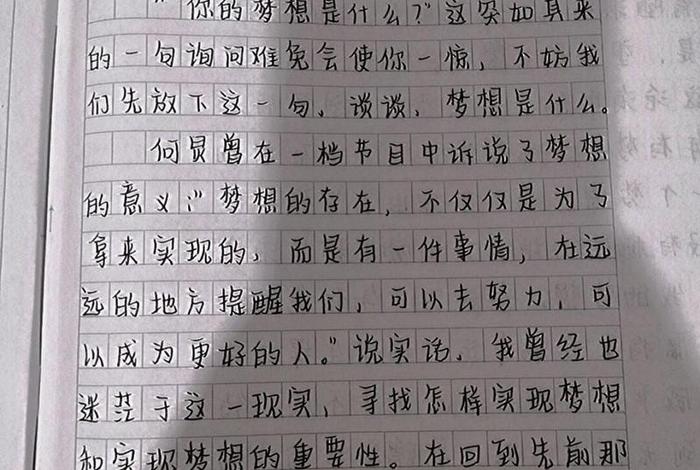 “你的梦想是什么?”这突如其来
的一句询问难免会使你一惊，不妨我
们先放下这一句，谈谈，梦想是什么。
何炅曾在一档节目中诉说了梦想
的意义:“梦想的存在，不仅仅是为了
拿来实现的，而是有一件事情，在远
远的地方提醒我们，可以去努力，可
以成为更好的人。”说实话，我曾经也
迷茫于这一现实，寻找怎样实现梦想
和实现梦想的重要性。在回到先前那